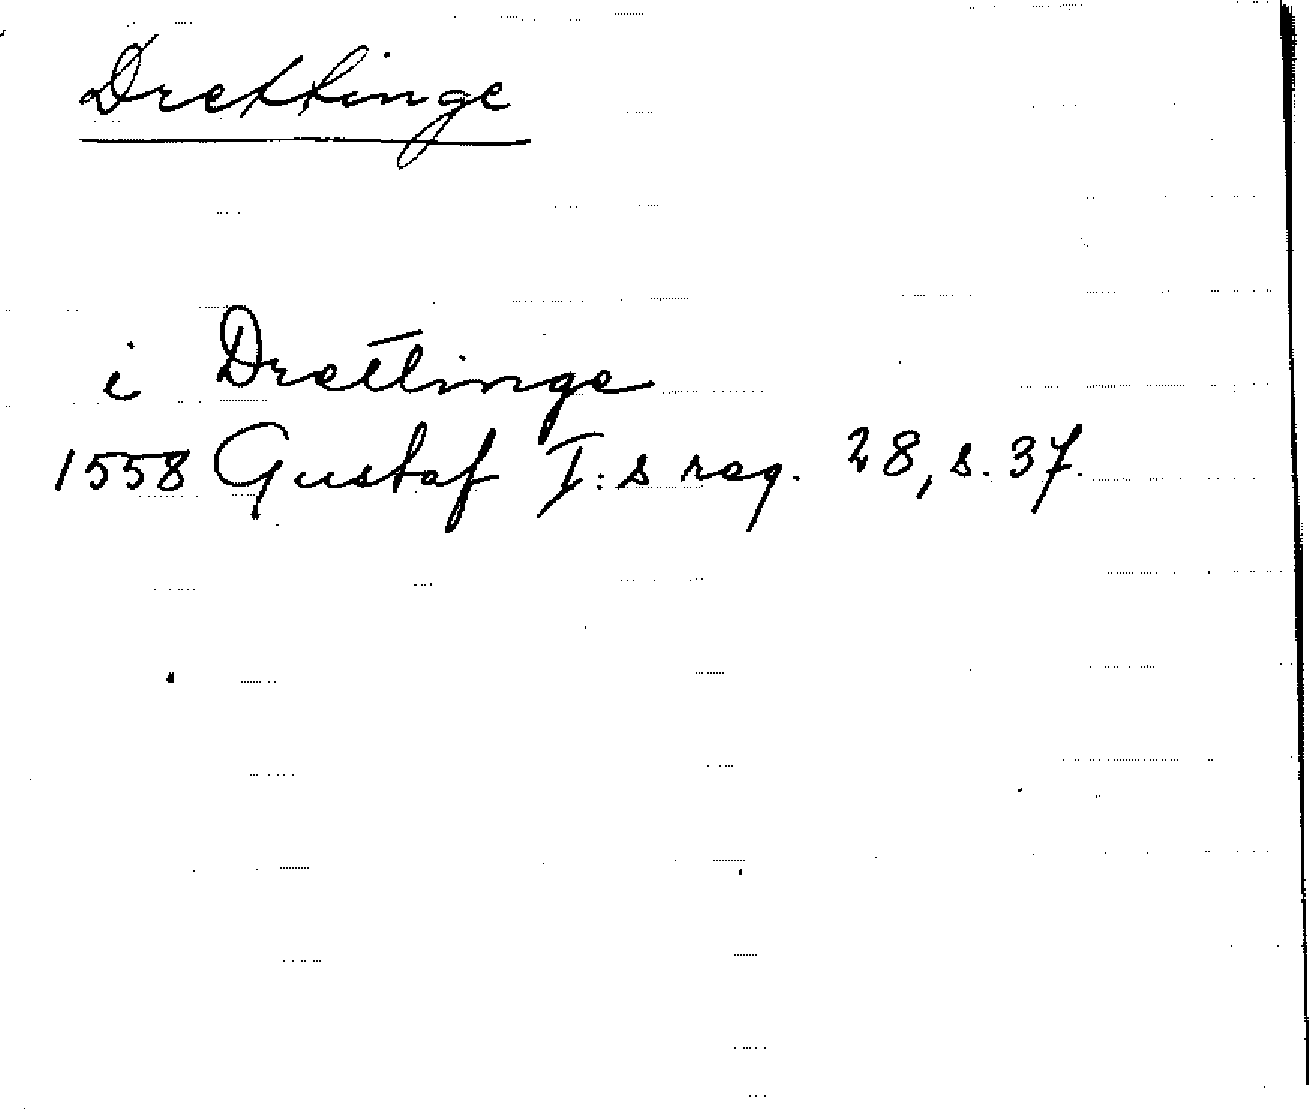 Drettinge
i Drettinge
1558 Gustaf I:s reg. 28, s. 37.